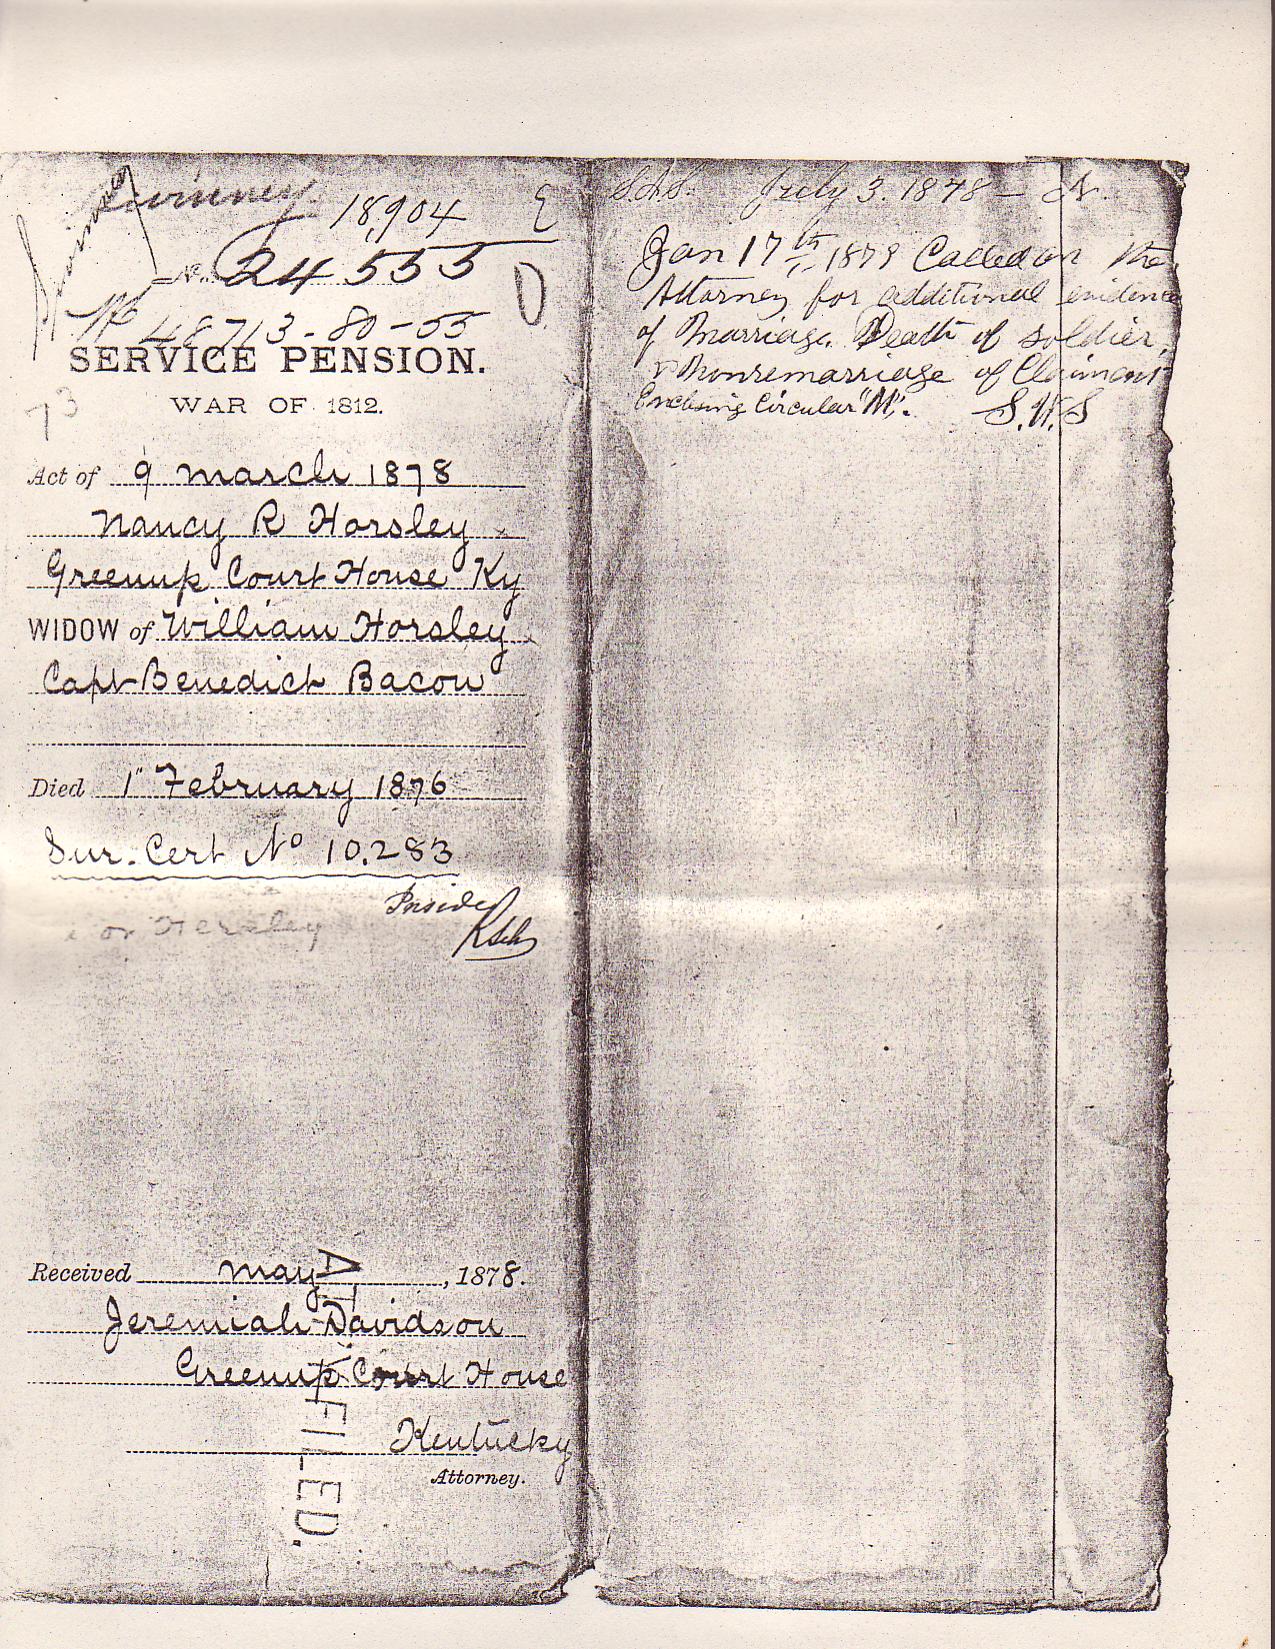 18,904
No. 24,555
48713-80-55
SERVICE PENSION.
WAR OF 1812.
73
Act of 9 March 1878
Nancy R Horsley
Greenup Court House Ky
WIDOW of William Horsley
Capt Benedict Bacon
Died 1" February 1876
Sur. Cert No 10.283
or Hersley
Received May, 1878.
Jeremiah Davidson
Greenup Court House
Kentucky
Attorney.
FILED.
July 3. 1878 -
Jan 17th 1879 Called on the
Attorney for additional evidence
of Marriage. Death of soldier,
& Nonremarriage of Claimant
Enclosing Circular "M".